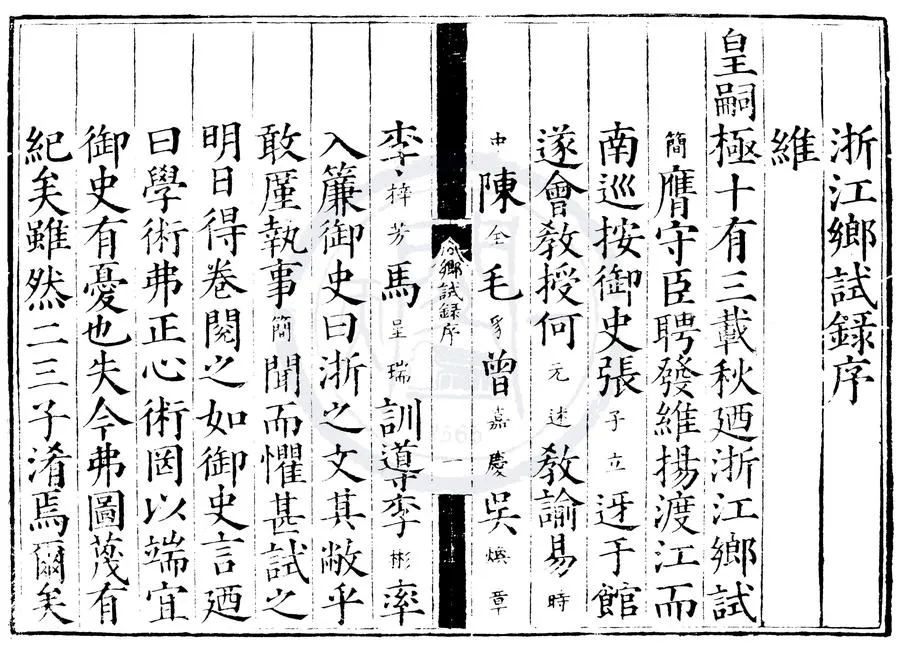 浙江鄉試録序
維
皇嗣極十有三載秋廼浙江鄉試
簡膺守臣聘發維揚渡江而
南巡按御史張子立迓于館
遂會教授何元述教諭易時
中陳全毛豸曾嘉慶吳焕章
鄉試録序
一
李梓芳馬呈瑞訓導李彬率
入簾御史曰浙之文其敝乎
敢厪執事簡聞而懼甚試之
明日得卷閱之如御史言廼
曰學術弗正心術罔以端宜
御史有憂也失今弗圖蔑有
紀矣雖然二三子淆焉爾矣